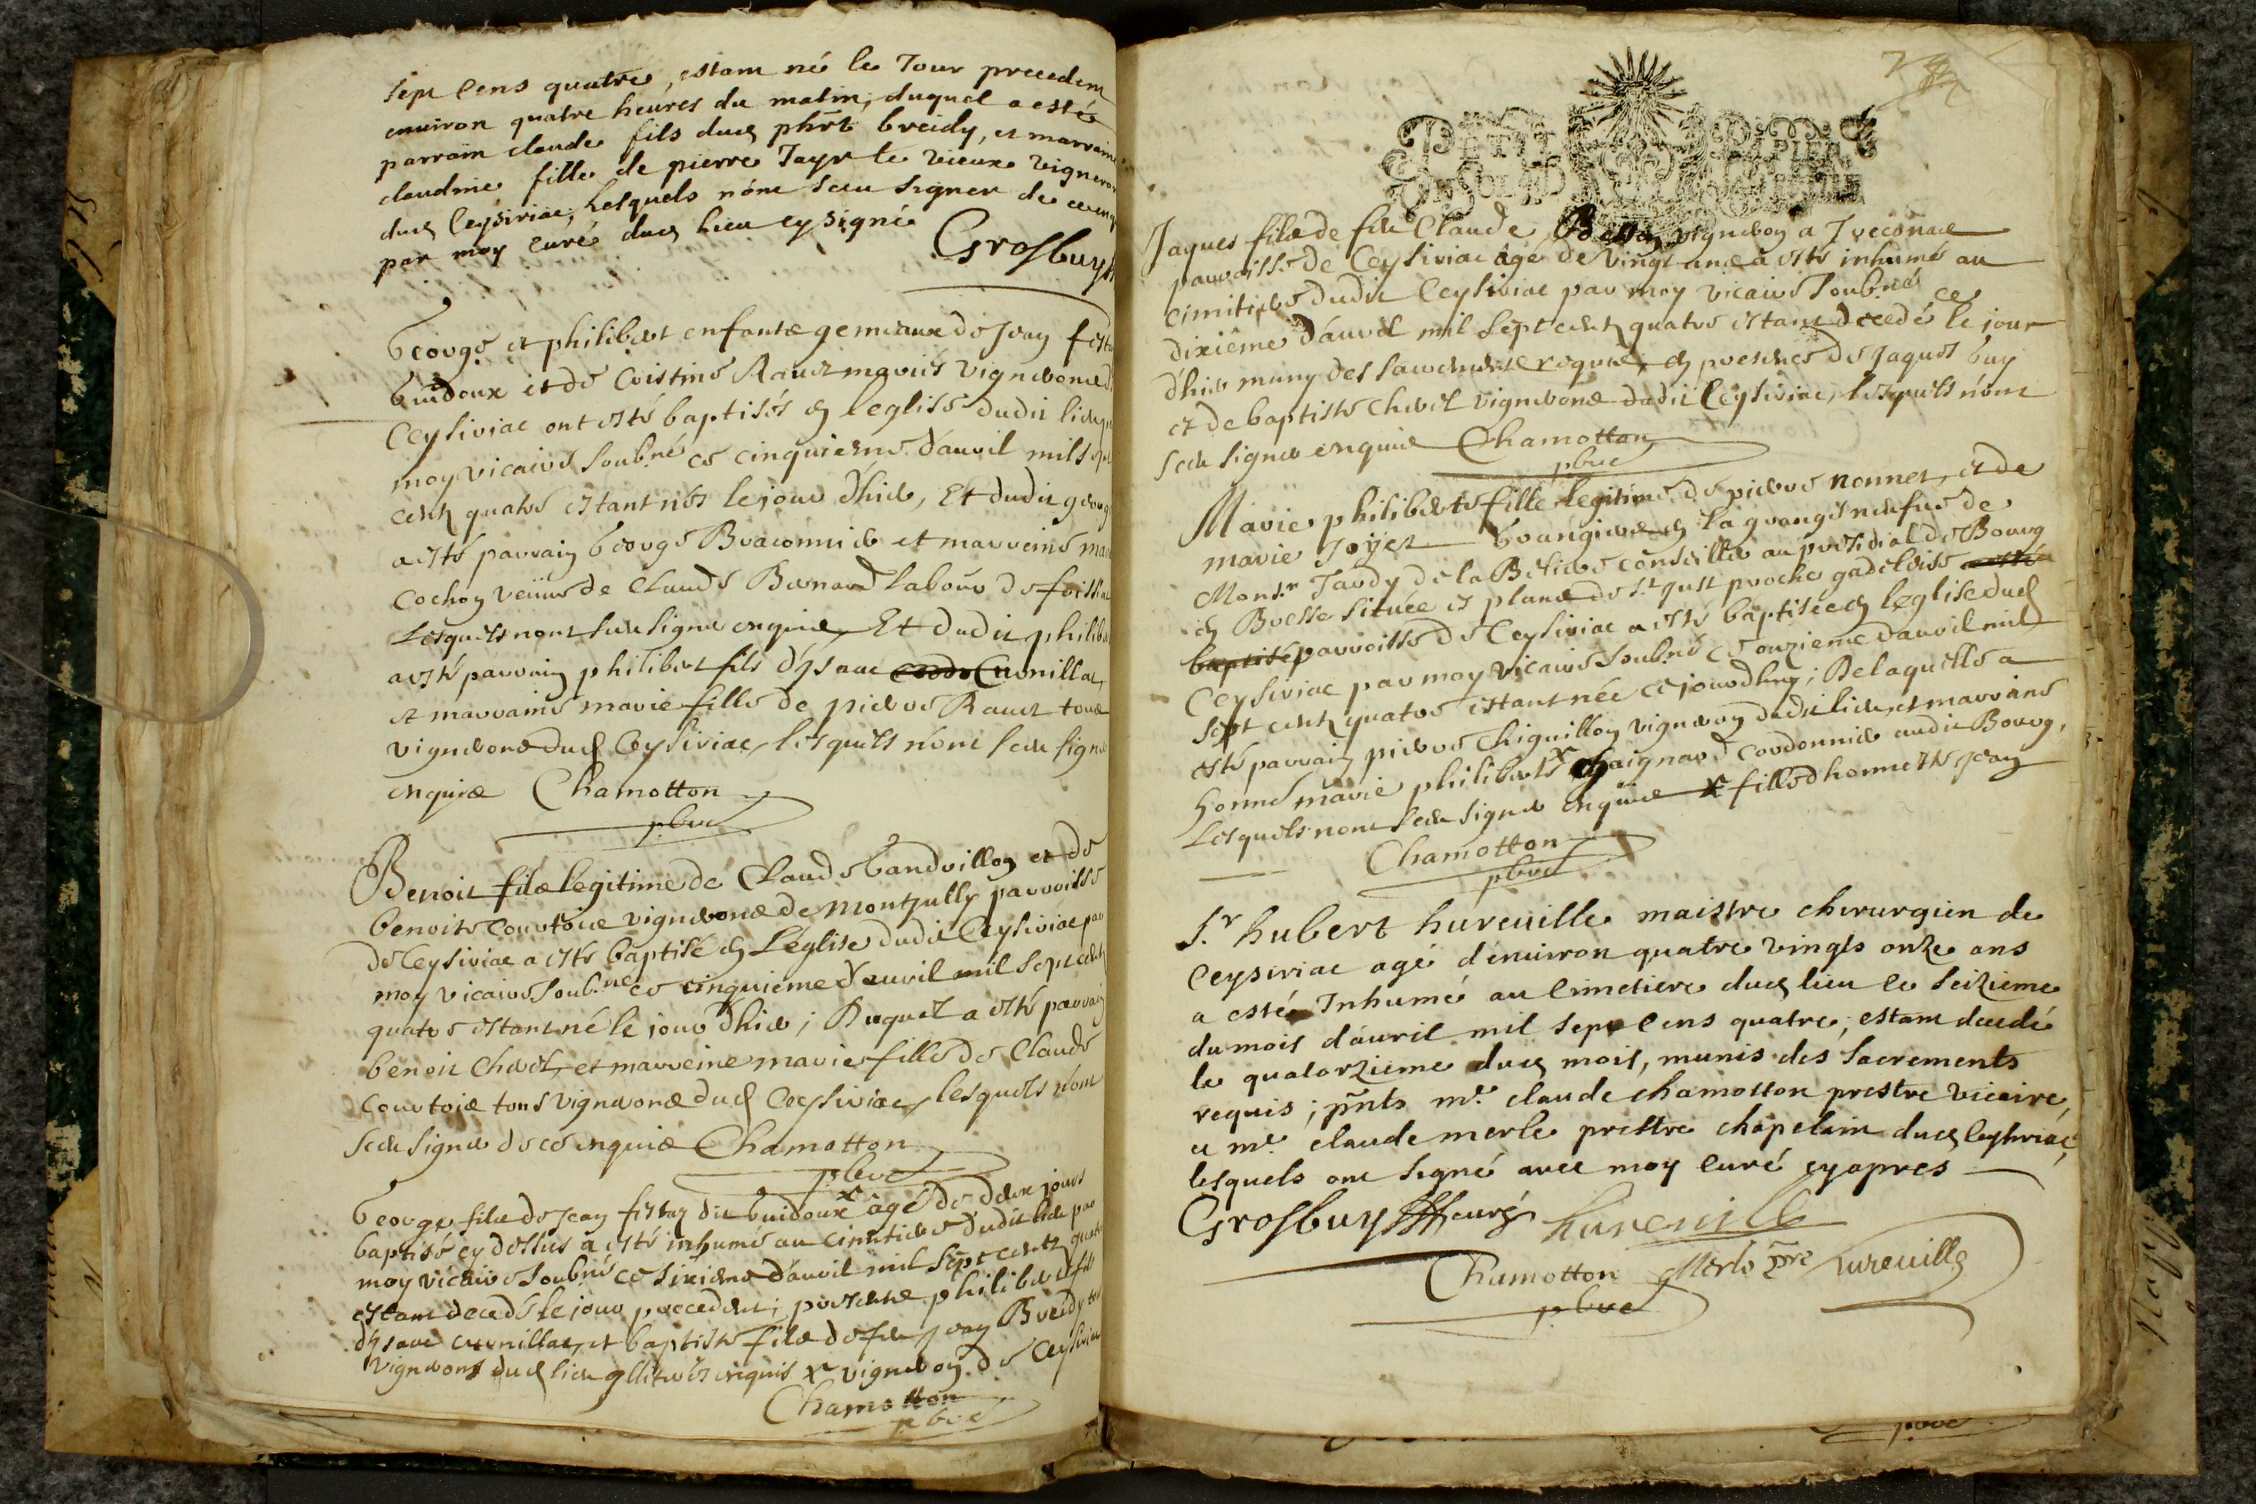 sept cens quatre, estant né le Jour precedent
environ quatre heures du matin, duquel a esté
parrain claude fils dud phrt breidy, et marraine
claudine fille de pierre Jayr le vieux vigneron
dud Ceysiriac, lesquels n'ont sceu signer de ce enq
par moy curé dud lieu cy signé
Grosbuy
George et philibert enfants gemeaux de Jean
buidoux et de Cristine Ravet mariés vignerons d
Ceysiriac ont esté baptisés en l'eglise dudit lieu p
moy vicaire soubné ce cinquieme d'auril mil sept
cent quatre estant nés le jour d'hier, Et dudit georg
a esté parrain George Braconnier et marreine mar
Cochon veiiue de Claude Bernard labour de
Lesquels n'ont sceu signer enquis, Et dudit philiber
a esté parrain philibert fils d'ysaac Curnillat,
et marraine marie fille de pierre Ravet tous
vignerons dud Ceysiriac, lesquels n'ont sceu signer
enquis Chamotton
pbre
Benoit fils legitime de Claude Gandrillon et de
benoite Courtois vignerons de montjully parroisse
de Ceysiriac a esté baptisé en L'église dudit Ceysiriac par
moy vicaire soub.né ce cinquieme d'auril mil sept cent
quatre estant né le jour d'hier; Duquel a esté parrain
benoit Chevet, et marreine marie fille de Claude
Courtois tous vignerons dud Ceysiriac, lesquels n'ont
sceu signer de ce enquis Chamotton
pbre
George fils de Jean dit buidoux x âgé de deux jours
baptisé cy dessus a esté inhumé au cimitiere dudit lieu par
moy vicaire soubné ce sixieme d'auril mil sept cent quatre
estant decedé le jour precedent; presents philibert fils
d'ysaac Curnillat, et baptiste fils de feu Jean Breidy tous
vignerons dud lieu illiterés enquis x vigneron de Ceysiriac
Chamotton
pbre
PETIT PAPIER
Jaques fils de feu Claude vigneron a
parroisse de Ceysiriac âgé de vingt ans a esté inhumé au
cimitiere dudit Ceysiriac par moy vicaire soubné ce
dixiême d'auril mil sept cent quatre estant decedé le jour
d'hier muny des sacrements requis, en presence de Jaques buy
et de baptiste Chevet vignerons dudit Ceysiriac, lesquels n'ont
sceu signer enquis Chamotton
pbre
Marie philiberte fille legitime de pierre nonnet, et de
marie Joyet Grangiers en la grange neufue de
Mons.r Tardy de la Beliere conseiller au presidial de Bourg
en Bresse située es plans de S.t Just proche
parroisse de Ceysiriac a esté baptisée en leglise dud
Ceysiriac par moy vicaire soubné ce onzieme d'auril mil
sept cent quatre estant née ce jourdhuy; De laquelle a
esté parrain pierre Chiquillon vigneron dudit lieu et marraine
honne marie philiberte x Chaignard cordonnier audit Bourg,
Lesquels n'ont sceu signer enquis x fille d'honneste Jean
Chamotton
pbre
S.r hubert hureuille maistre chirurgien de
Ceysiriac agé d'enuiron quatre vingts onze ans
a esté Inhumé au Cimetiere dud lieu le seizieme
du mois d'auril mil sept cens quatre, estant decedé
le quatorzieme dud mois, munis des sacrements
requis; pnts m.e claude chamotton prestre vicaire,
et m.e claude merle prestre chapelain dud Ceysiriac,
lesquels ont signé avec moy curé cy apres
Grosbuy curé hureuille
Chamotton Merle pre hureuille
pbre